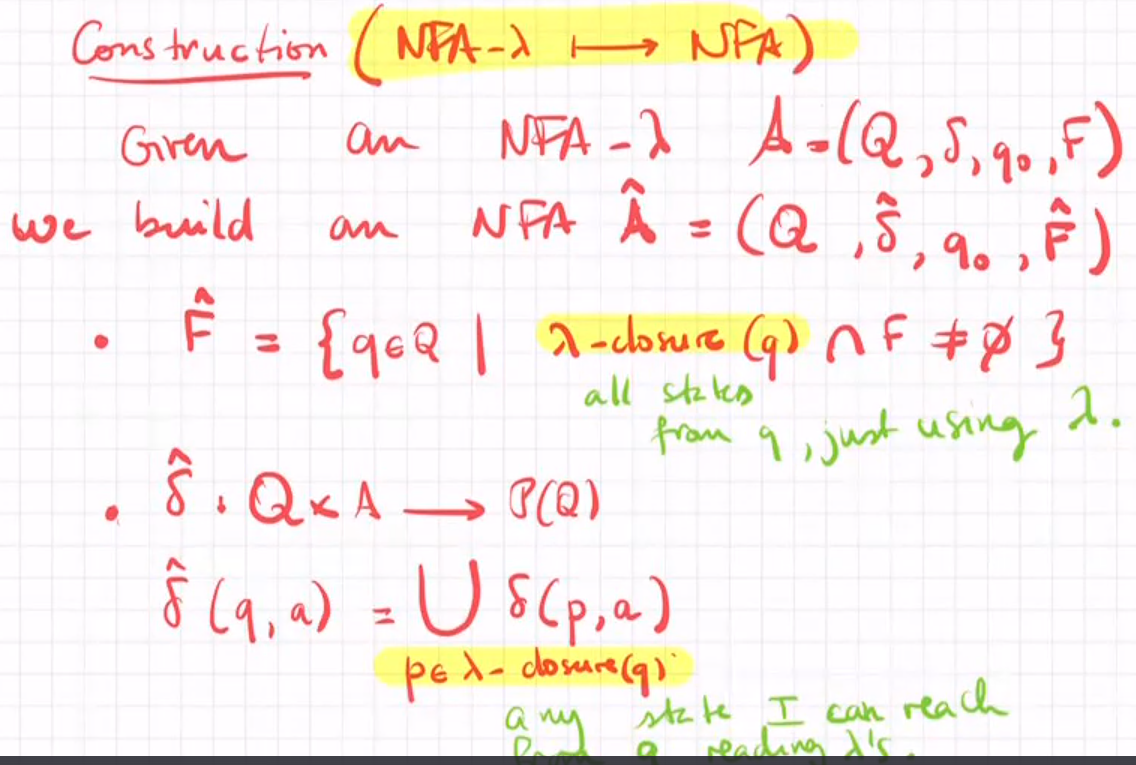 Construction (NFA-λ ⟼ NFA)
Given an NFA-λ A=(Q, δ, q₀, F)
we build an NFA Â = (Q, δ̂, q₀, F̂)
• F̂ = {q∈Q | λ-closure(q) ∩ F ≠ ∅}
all states
from q, just using λ.
• δ̂ : Q×A ⟶ P(Q)
δ̂(q, a) = ⋃ δ(p, a)
p∈ λ-closure(q)
any state I can reach
from q reading λ's.